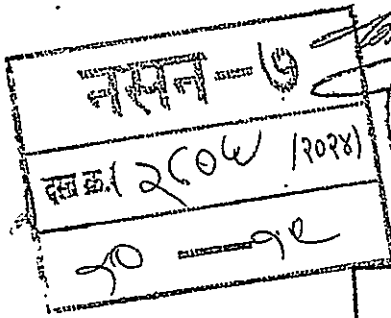 नसन-७
दस्त क्र.( २८०५ /२०२४)
१० — १९